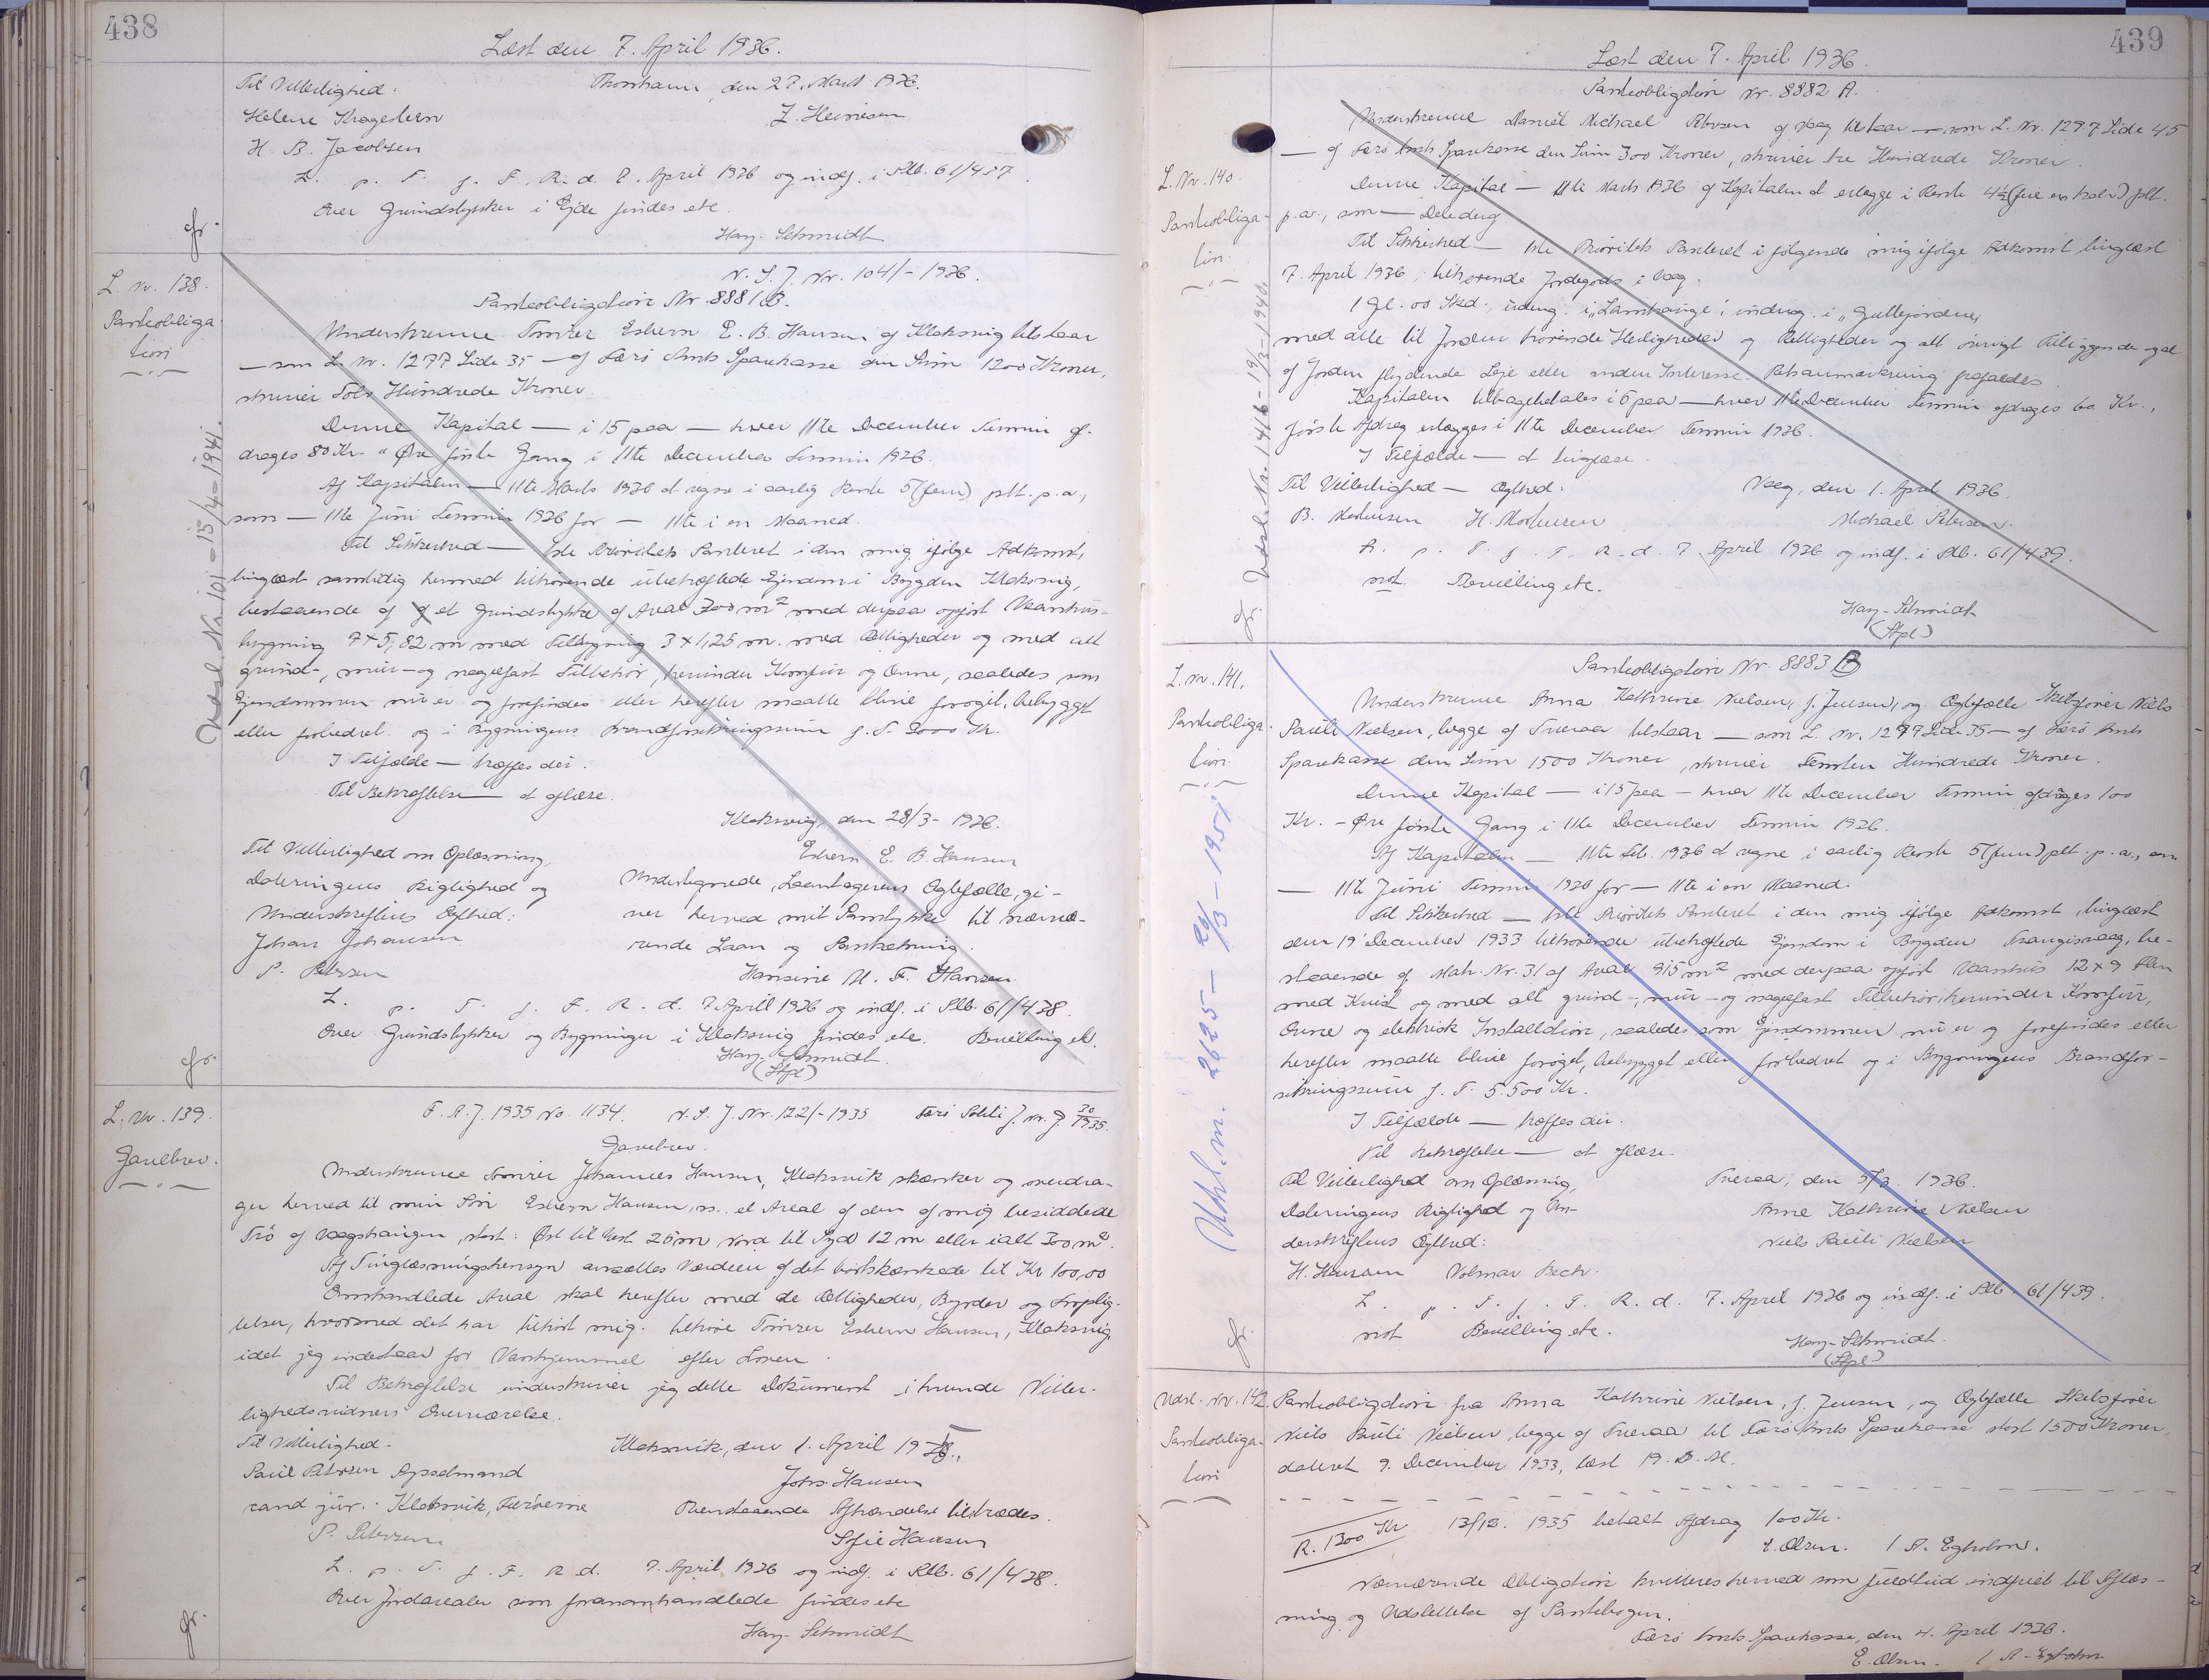 438
Læst den 7. April 1936.
Til Vitterlighed. Thorshavn, den 27. Marts 1936.
Helene Kragesteen Z. Heinesen
H. B. Jacobsen
L. p. T. f. F. R. d. 7. April 1936 og indf. i Plb. 61/437
Over Grundstykker i Ejde findes etc.
Hany-Schmidt
L. Nr. 138.
Panteobliga-
tion
N. S. J. Nr. 104/-1936.
Panteobligation Nr. 8881 B.
Underskrevne Tømrer Esbern E. B. Hansen af Klaksvig tilstaar
— som L. Nr. 1277 Side 35 — af Færø Amts Sparekasse den Sum 1200 Kroner,
skriver Tolv Hundrede Kroner.
Denne Kapital — i 15 paa — hver 11te December Termin af-
drages 80 Kr. " Øre første Gang i 11te December Termin 1936.
Af Kapitalen — 11te Marts 1936 at regne i aarlig Rente 5 (fem) pCt. p. a.,
som — 11te Juni Termin 1936 for — 11te i en Maaned.
Til Sikkerhed — 1ste Prioritets Panteret i den mig ifølge Adkomst,
tinglæst samtidig hermed tilhørende ubehæftede Ejendom i Bygden Klaksvig,
bestaaende af et Grundstykke af Areal 300 m² med derpaa opført Vaanhus-
bygning 7 x 5,82 m med Tilbygning 3 x 1,25 m. med Rettigheder og med alt
grund-, mur- og nagelfast Tilbehør, herunder Komfur og Ovne, saaledes som
Ejendommen nu er og forefindes eller herefter maatte blive forøget, bebygget
eller forbedret og i Bygningens Brandforsikringssum f. T. 3000 Kr.
I Tilfælde — træffes dei.
Til Bekræftelse — at aflæse.
Klaksvig, den 28/3- 1936.
Til Vitterlighed om Oplæsning, Esbern E. B. Hansen
Dateringens Rigtighed og Undertegnede, Laantagerens Ægtefælle, gi-
Underskriftens Ægthed: ver herved mit Samtykke til nærvæ-
Johan Johansen rende Laan og Pantsætning.
P. Petersen Hansine M. F. Hansen
L. p. T. f. F. R. d. 7 April 1936 og indf. i Plb. 61/438.
Over Grundstykker og Bygninger i Klaksvig findes etc. Bevilling etc.
Hany-Schmidt.
(Stpl)
Udsl. Nr. 101 - 15/4 - 1941.
L. Nr. 139.
Gavebrev.
F. A. J. 1935 No. 1134. N. S. J. Nr. 122/-1935 Færø Politi J. Nr. J. 30/1935.
Gavebrev.
Underskrevne Tømrer Johannes Hansen, Klaksvik skænker og overdra-
ger herved til min Søn Esbern Hansen, ss., et Areal af den af mig besiddede
Trø af Vaagshaugen, stort: Øst til Vest 25 m Nord til Syd 12 m eller ialt 300 m².
Af Tinglæsningshensyn ansættes Værdien af det bortskænkede til Kr 100,00
Omhandlede Areal skal herefter med de Rettigheder, Byrder og Forplig-
telser, hvormed det har tilhørt mig. tilhøre Tømrer Esbern Hansen, Klaksvig,
idet jeg indestaar for Vanhjemmel efter Loven.
Til Bekræftelse underskriver jeg dette Dokument i tvende Vitter-
lighedsvidners Overværelse.
Til Vitterlighed. Klaksvik, den 1. April 1936.
Paul Petersen Aysselmand Johs. Hansen
cand jur. Klaksvik, Færöerne Ovenstaaende Afhændelse tiltrædes.
P. Petersen Sofie Hansen
L. p. T. f. F. R. d. 7. April 1936 og indf. i Plb. 61/438.
Over Jordarealer som foranomhandlede findes etc
Hany-Schmidt
439
Læst den 7. April 1936.
L. Nr. 140.
Panteobliga-
tion.
Panteobligation Nr. 8882 A.
Underskrevne Daniel Michael Petersen af Vaag tilstaar — som L. Nr. 1297 Side 45
— af Færø Amts Sparekasse den Sum 300 Kroner, skriver tre Hundrede Kroner.
Denne Kapital — 11te Marts 1936 af Kapitalen at erlægge i Rente 4½ (fire en halv) pCt.
p. a., som — Deledag.
Til Sikkerhed — 1ste Prioritets Panteret i følgende mig ifølge Adkomst tinglæst
7. April 1936, tilhørende Jordegods i Vaag.
1 Gl. 00 Skd., udmg. i „Lambhauge", indmg. i „Gullejordun„
med alle til Jorden hørende Herligheder og Rettigheder og alt øvrigt Tilliggende og al
af Jorden flydende Leje eller anden Interesse. Retsanmærkning frafaldes.
Kapitalen tilbagebetales i 5 paa — hver 11te December Termin afdrages 60 Kr.,
første Afdrag erlægges i 11te December Termin 1936.
I Tilfælde — at tinglæse.
Til Vitterlighed — Ægthed: Vaag, den 1. April 1936.
B. Mortensen H. Mortensen Michael Petersen.
L. p. T. f. F. R. d. 7. April 1936 og indf. i Plb. 61/439.
not. Bevilling etc.
Hany-Schmidt
(Stpl)
Udsl. Nr. 146 - 19/3 - 1940.
L. Nr. 141.
Panteobliga-
tion.
Panteobligation Nr. 8883 B
Underskrevne Anna Kathrine Nielsen, f. Jensen, og Ægtefælle Skibsfører Niels
Pauli Nielsen, begge af Tveraa tilstaar — som L. Nr. 1277 Side 35 — af Færø Amts
Sparekasse den Sum 1500 Kroner, skriver Femten Hundrede Kroner.
Denne Kapital — i 15 paa — hver 11te December Termin afdrages 100
Kr. - Øre første Gang i 11te December Termin 1936.
Af Kapitalen — 11te Feb. 1936 at regne i aarlig Rente 5 (fem) pCt. p. a., som
— 11te Juni Termin 1936 for — 11te i en Maaned.
Til Sikkerhed — 1ste Prioritets Panteret i den mig ifølge Adkomst, tinglæst
den 19' December 1933 tilhørende ubehæftede Ejendom i Bygden Trangisvaag, be-
staaende af Matr. Nr. 31 af Areal 915 m² med derpaa opført Vaanhus 12 x 9 Alen
med Kvist og med alt grund-, mur- og nagelfast Tilbehør, herunder Komfur,
Ovne og elektrisk Installation, saaledes som Ejendommen nu er og forefindes eller
herefter maatte blive forøget, bebygget eller forbedret og i Bygningens Brandfor-
sikringssum f. T. 5.500 Kr.
I Tilfælde — træffes dei.
Til Bekræftelse — at aflæse.
Til Vitterlighed om Oplæsning, Tveraa, den 5/3. 1936.
Dateringens Rigtighed og Un- Anna Kathrine Nielsen
derskriftens Ægthed: Niels Pauli Nielsen
H. Hansen Volmar Bech.
L. p. T. f. F. R. d. 7. April 1936 og indf. i Plb. 61/439.
not Bevilling etc.
Hany-Schmidt.
(Stpl)
Udsl. Nr. 142.
Panteobliga-
tion
Panteobligation fra Anna Kathrine Nielsen, f. Jensen, og Ægtefælle Skibsfører
Niels Pauli Nielsen, begge af Tveraa til Færø Amts Sparekasse stort 1500 Kroner,
dateret 9. December 1933, læst 19. D. M.
R. 1300 Kr 13/12. 1935 betalt Afdrag 100 Kr.
E. Olsen. / A. Egholm.
Nærværende Obligation kvitteres herved som fuldtud indfriet til Aflæs-
ning og Udslettelse af Pantebogen.
Færø Amts Sparekasse, den 4. April 1936.
E. Olsen. / A. Egholm